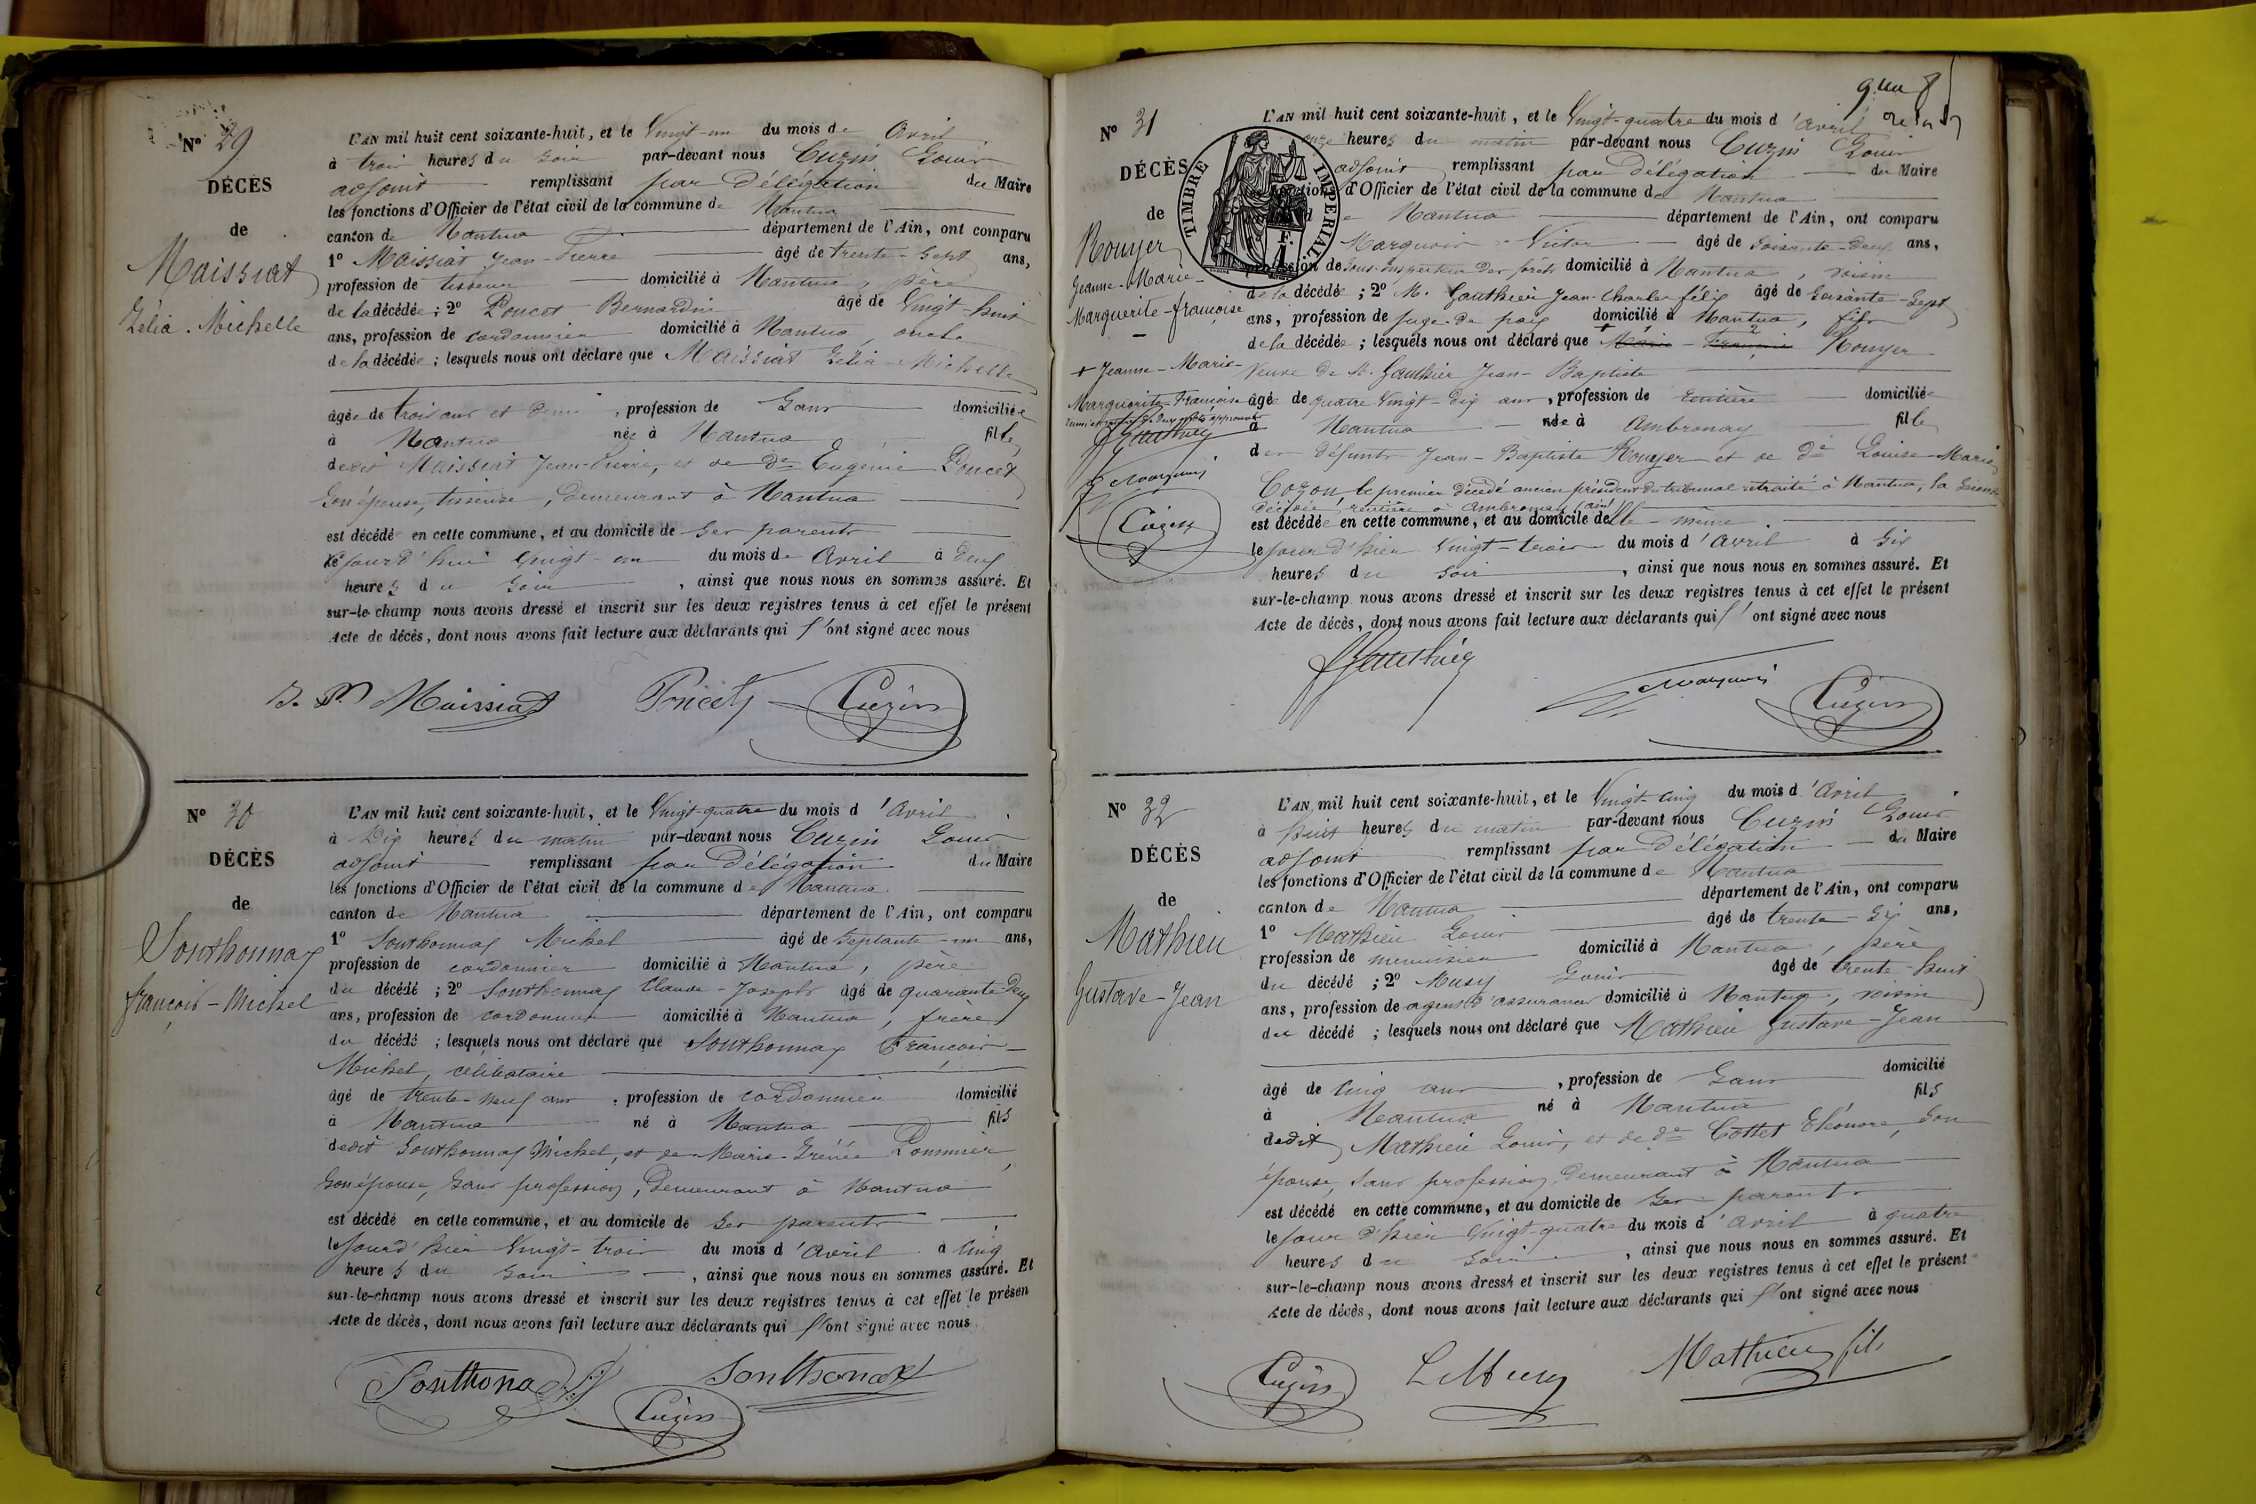 N° 29
DÉCÈS
de
Maissiat
Zélia-Michelle
L'AN mil huit cent soixante-huit, et le Vingt-un du mois de Avril
à trois heures du soir par-devant nous Cuzin Louis
adjoint remplissant par Délégation du Maire
les fonctions d'Officier de l'état civil de la commune de Nantua
canton de Nantua département de l'Ain, ont comparu
1° Maissiat Jean-Pierre âgé de trente-sept ans,
profession de tisseur domicilié à Nantua, père
de la décédée ; 2° Poncet Bernardin âgé de Vingt-huit
ans, profession de cordonnier domicilié à Nantua, oncle
de la décédée ; lesquels nous ont déclaré que Maissiat Zélia-Michelle
âgée de trois ans et demi, profession de Sans domiciliée
à Nantua née à Nantua fille
dedit Maissiat Jean-Pierre, et de De Eugénie Poncet
son épouse, tisseuse, demeurant à Nantua
est décédé en cette commune, et au domicile de ses parents
le jourd'hui Vingt-un du mois de Avril à deux
heures du soir, ainsi que nous nous en sommes assuré. Et
sur-le-champ nous avons dressé et inscrit sur les deux registres tenus à cet effet le présent
Acte de décès, dont nous avons fait lecture aux déclarants qui l'ont signé avec nous
J. P. Maissiat Poncet Cuzin
N° 30
DÉCÈS
de
Sonthonnax
françois-Michel
L'AN mil huit cent soixante-huit, et le Vingt-quatre du mois d'Avril
à Dix heures du matin par-devant nous Cuzin Louis
adjoint remplissant par Délégation du Maire
les fonctions d'Officier de l'état civil de la commune de Nantua
canton de Nantua département de l'Ain, ont comparu
1° Sonthonnax Michel âgé de septante-un ans,
profession de cordonnier domicilié à Nantua, père
du décédé ; 2° Sonthonnax Claude-Joseph âgé de quarante-deux
ans, profession de cordonnier domicilié à Nantua, frère
du décédé ; lesquels nous ont déclaré que Sonthonnax François-
Michel, célibataire
âgé de trente-neuf ans, profession de cordonnier domicilié
à Nantua né à Nantua fils
dedit Sonthonnax Michel, et de Marie-Irénée Pommier,
son épouse, sans profession, demeurant à Nantua
est décédé en cette commune, et au domicile de ses parents
le jour d'hier Vingt-trois du mois d'Avril à Cinq
heures du soir, ainsi que nous nous en sommes assuré. Et
sur-le-champ nous avons dressé et inscrit sur les deux registres tenus à cet effet le présen
Acte de décès, dont nous avons fait lecture aux déclarants qui l'ont signé avec nous
Sonthonax Sonthonax
Cuzin
TIMBRE IMPÉRIAL
F.
1
N° 31
DÉCÈS
de
Rouyer
Jeanne-Marie-
Marguerite-françoise
+ Jeanne-Marie-
Marguerite-Françoise
Gauthier
Marquois
Cuzin
L'AN mil huit cent soixante-huit, et le Vingt-quatre du mois d'Avril
onze heures du matin par-devant nous Cuzin Louis
adjoint remplissant par Délégation du Maire
d'Officier de l'état civil de la commune de Nantua
de Nantua département de l'Ain, ont comparu
Marquois Victor âgé de soixante-deux ans,
profession de Sous-Inspecteur des forêts domicilié à Nantua, voisin
de la décédée ; 2° M. Gauthier Jean-Charles félix âgé de soixante-sept
ans, profession de juge de paix domicilié à Nantua, fils
de la décédée ; lesquels nous ont déclaré que + Marie-Françoise Rouyer
Veuve de M. Gauthier Jean-Baptiste
âgée de quatre Vingt-dix ans, profession de rentière domiciliée
à Nantua née à Ambronay fille
des défunts Jean-Baptiste Rouyer et de De Louise-Marie
Cozon, le premier décédé ancien président du tribunal retraité à Nantua, la seconde
décédée, rentière à Ambronay (ain)
est décédée en cette commune, et au domicile d'elle-même.
le jour d'hier Vingt-trois du mois d'Avril à six
heures du soir, ainsi que nous nous en sommes assuré. Et
sur-le-champ nous avons dressé et inscrit sur les deux registres tenus à cet effet le présent
Acte de décès, dont nous avons fait lecture aux déclarants qui l'ont signé avec nous
Gauthier Marquois Cuzin
N° 32
DÉCÈS
de
Mathieu
Gustave-Jean
L'AN mil huit cent soixante-huit, et le Vingt-cinq du mois d'Avril
à huit heures du matin par-devant nous Cuzin Louis
adjoint remplissant par Délégation du Maire
les fonctions d'Officier de l'état civil de la commune de Nantua
canton de Nantua département de l'Ain, ont comparu
1° Mathieu Louis âgé de trente-six ans,
profession de menuisier domicilié à Nantua, père
du décédé ; 2° Musy Louis âgé de trente-huit
ans, profession de agent d'assurances domicilié à Nantua, voisin
du décédé ; lesquels nous ont déclaré que Mathieu Gustave-Jean
âgé de cinq ans, profession de Sans domicilié
à Nantua né à Nantua fils
dedit Mathieu Louis, et de De Cottet Eléonore, son
épouse, sans profession, demeurant à Nantua
est décédé en cette commune, et au domicile de ses parents
le jour d'hier Vingt-quatre du mois d'Avril à quatre
heures du soir, ainsi que nous nous en sommes assuré. Et
sur-le-champ nous avons dressé et inscrit sur les deux registres tenus à cet effet le présent
Acte de décès, dont nous avons fait lecture aux déclarants qui l'ont signé avec nous
Cuzin L. Musy Mathieu fils